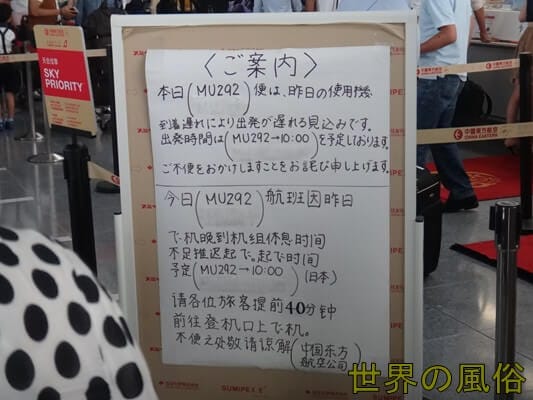 天合优享
SKY
PRIORITY
〈ご案内〉
本日(MU292)便は、昨日の使用機
到着遅れにより出発が遅れる見込みです。
出発時間は(MU292→10:00)を予定しております。
ご不便をおかけしますことをお詫び申し上げます。
今日(MU292)航班因昨日
飞机晚到机组休息时间
不足推迟起飞。起飞时间
予定(MU292→10:00)(日本)
请各位旅客提前40分钟
前往登机口上飞机。
不便之处敬请谅解(中国东方
航空公司)
SUMIPEX E
SUMIPEX
中國東方航空
中國東方航空
CHINA EASTERN
世界の風俗